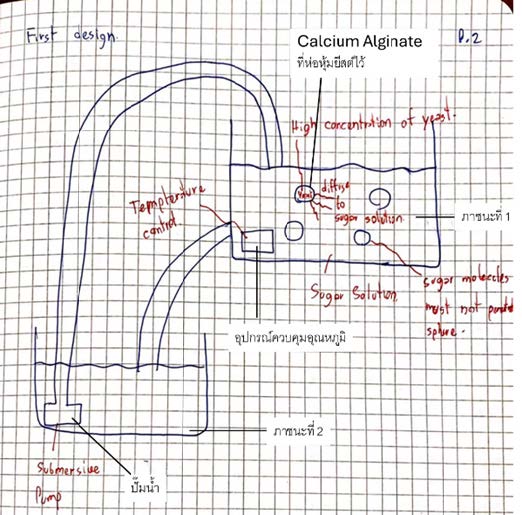 First design.
P.2
Calcium Alginate
ที่ห่อหุ้มยีสต์ไว้
High concentration of yeast.
Yeast
diffuse
to
sugar solution
Temperature
control.
ภาชนะที่ 1
Sugar Solution
Sugar molecules
must not
sphere.
อุปกรณ์ควบคุมอุณหภูมิ
ภาชนะที่ 2
Submersive
Pump
ปั๊มน้ำ